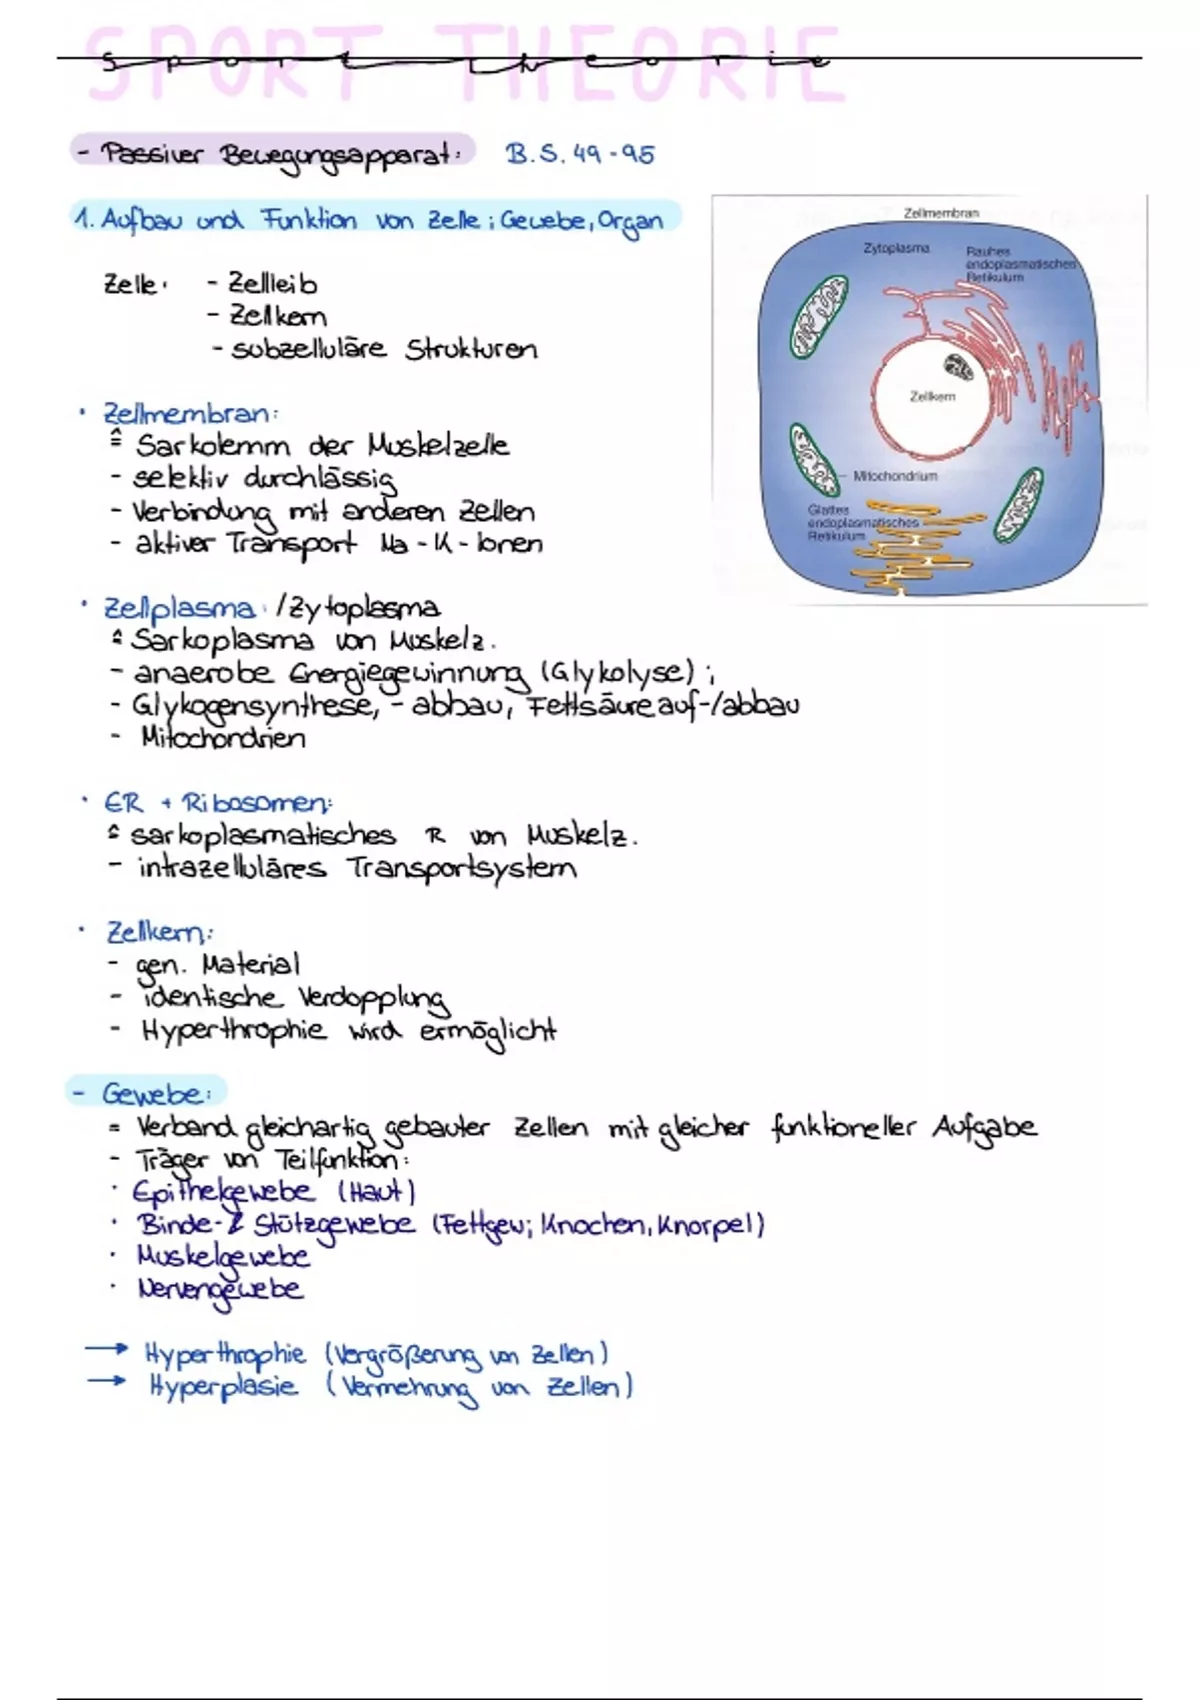 SPORT THEORIE
Sport Theorie
- Passiver Bewegungsapparat: B.S. 49-95
1. Aufbau und Funktion von Zelle; Gewebe, Organ
Zelle: - Zellleib
- Zellkern
- subzelluläre Strukturen
• Zellmembran:
≙ Sarkolemm der Muskelzelle
- selektiv durchlässig
- Verbindung mit anderen Zellen
- aktiver Transport Na-K-Ionen
• Zellplasma: /Zytoplasma
≙ Sarkoplasma von Muskelz.
- anaerobe Energiegewinnung (Glykolyse);
- Glykogensynthese, -abbau, Fettsäureauf-/abbau
- Mitochondrien
• ER + Ribosomen:
≙ sarkoplasmatisches R von Muskelz.
- intrazelluläres Transportsystem
• Zellkern:
- gen. Material
- identische Verdopplung
- Hyperthrophie wird ermöglicht
- Gewebe:
= Verband gleichartig gebauter Zellen mit gleicher funktioneller Aufgabe
- Träger von Teilfunktion:
• Epithelgewebe (Haut)
• Binde- & Stützgewebe (Fettgew; Knochen, Knorpel)
• Muskelgewebe
• Nervengewebe
→ Hyperthrophie (Vergrößerung von Zellen)
→ Hyperplasie (Vermehrung von Zellen)
Zellmembran
Zytoplasma
Rauhes
endoplasmatisches
Retikulum
Zellkern
Mitochondrium
Glattes
endoplasmatisches
Retikulum